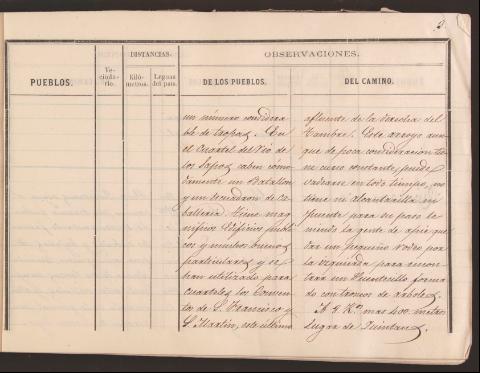 2
DISTANCIAS.
OBSERVACIONES.
PUEBLOS.
Ve-
cinda-
rio.
Kiló-
metros.
Leguas
del pais.
DE LOS PUEBLOS.
DEL CAMINO.
un número considera
ble de tropas. En
el Cuartel del Rio de
los Sapos caben cómo
damente un Batallon
y un Escuadron de Ca
balleria. Tiene mag
nificos Edificios públi
cos y muchos buenos
particulares y se
han utilizado para
cuarteles los Conven
tos de S. Francisco y
S. Martin, este ultimo
afluente de la derecha del
Tambre. Este arroyo aun
que de poca consideracion tie
ne curso constante, puede
vadearse en todo tiempo, no
tiene ni alcantarilla ni
puente para su paso te
niendo la gente de á pie que
dar un pequeño rodeo por
la izquierda para encon
trar un Puentecillo forma
do con troncos de árboles.
A 5 K.os mas 400 metros
Lugar de Quintans.